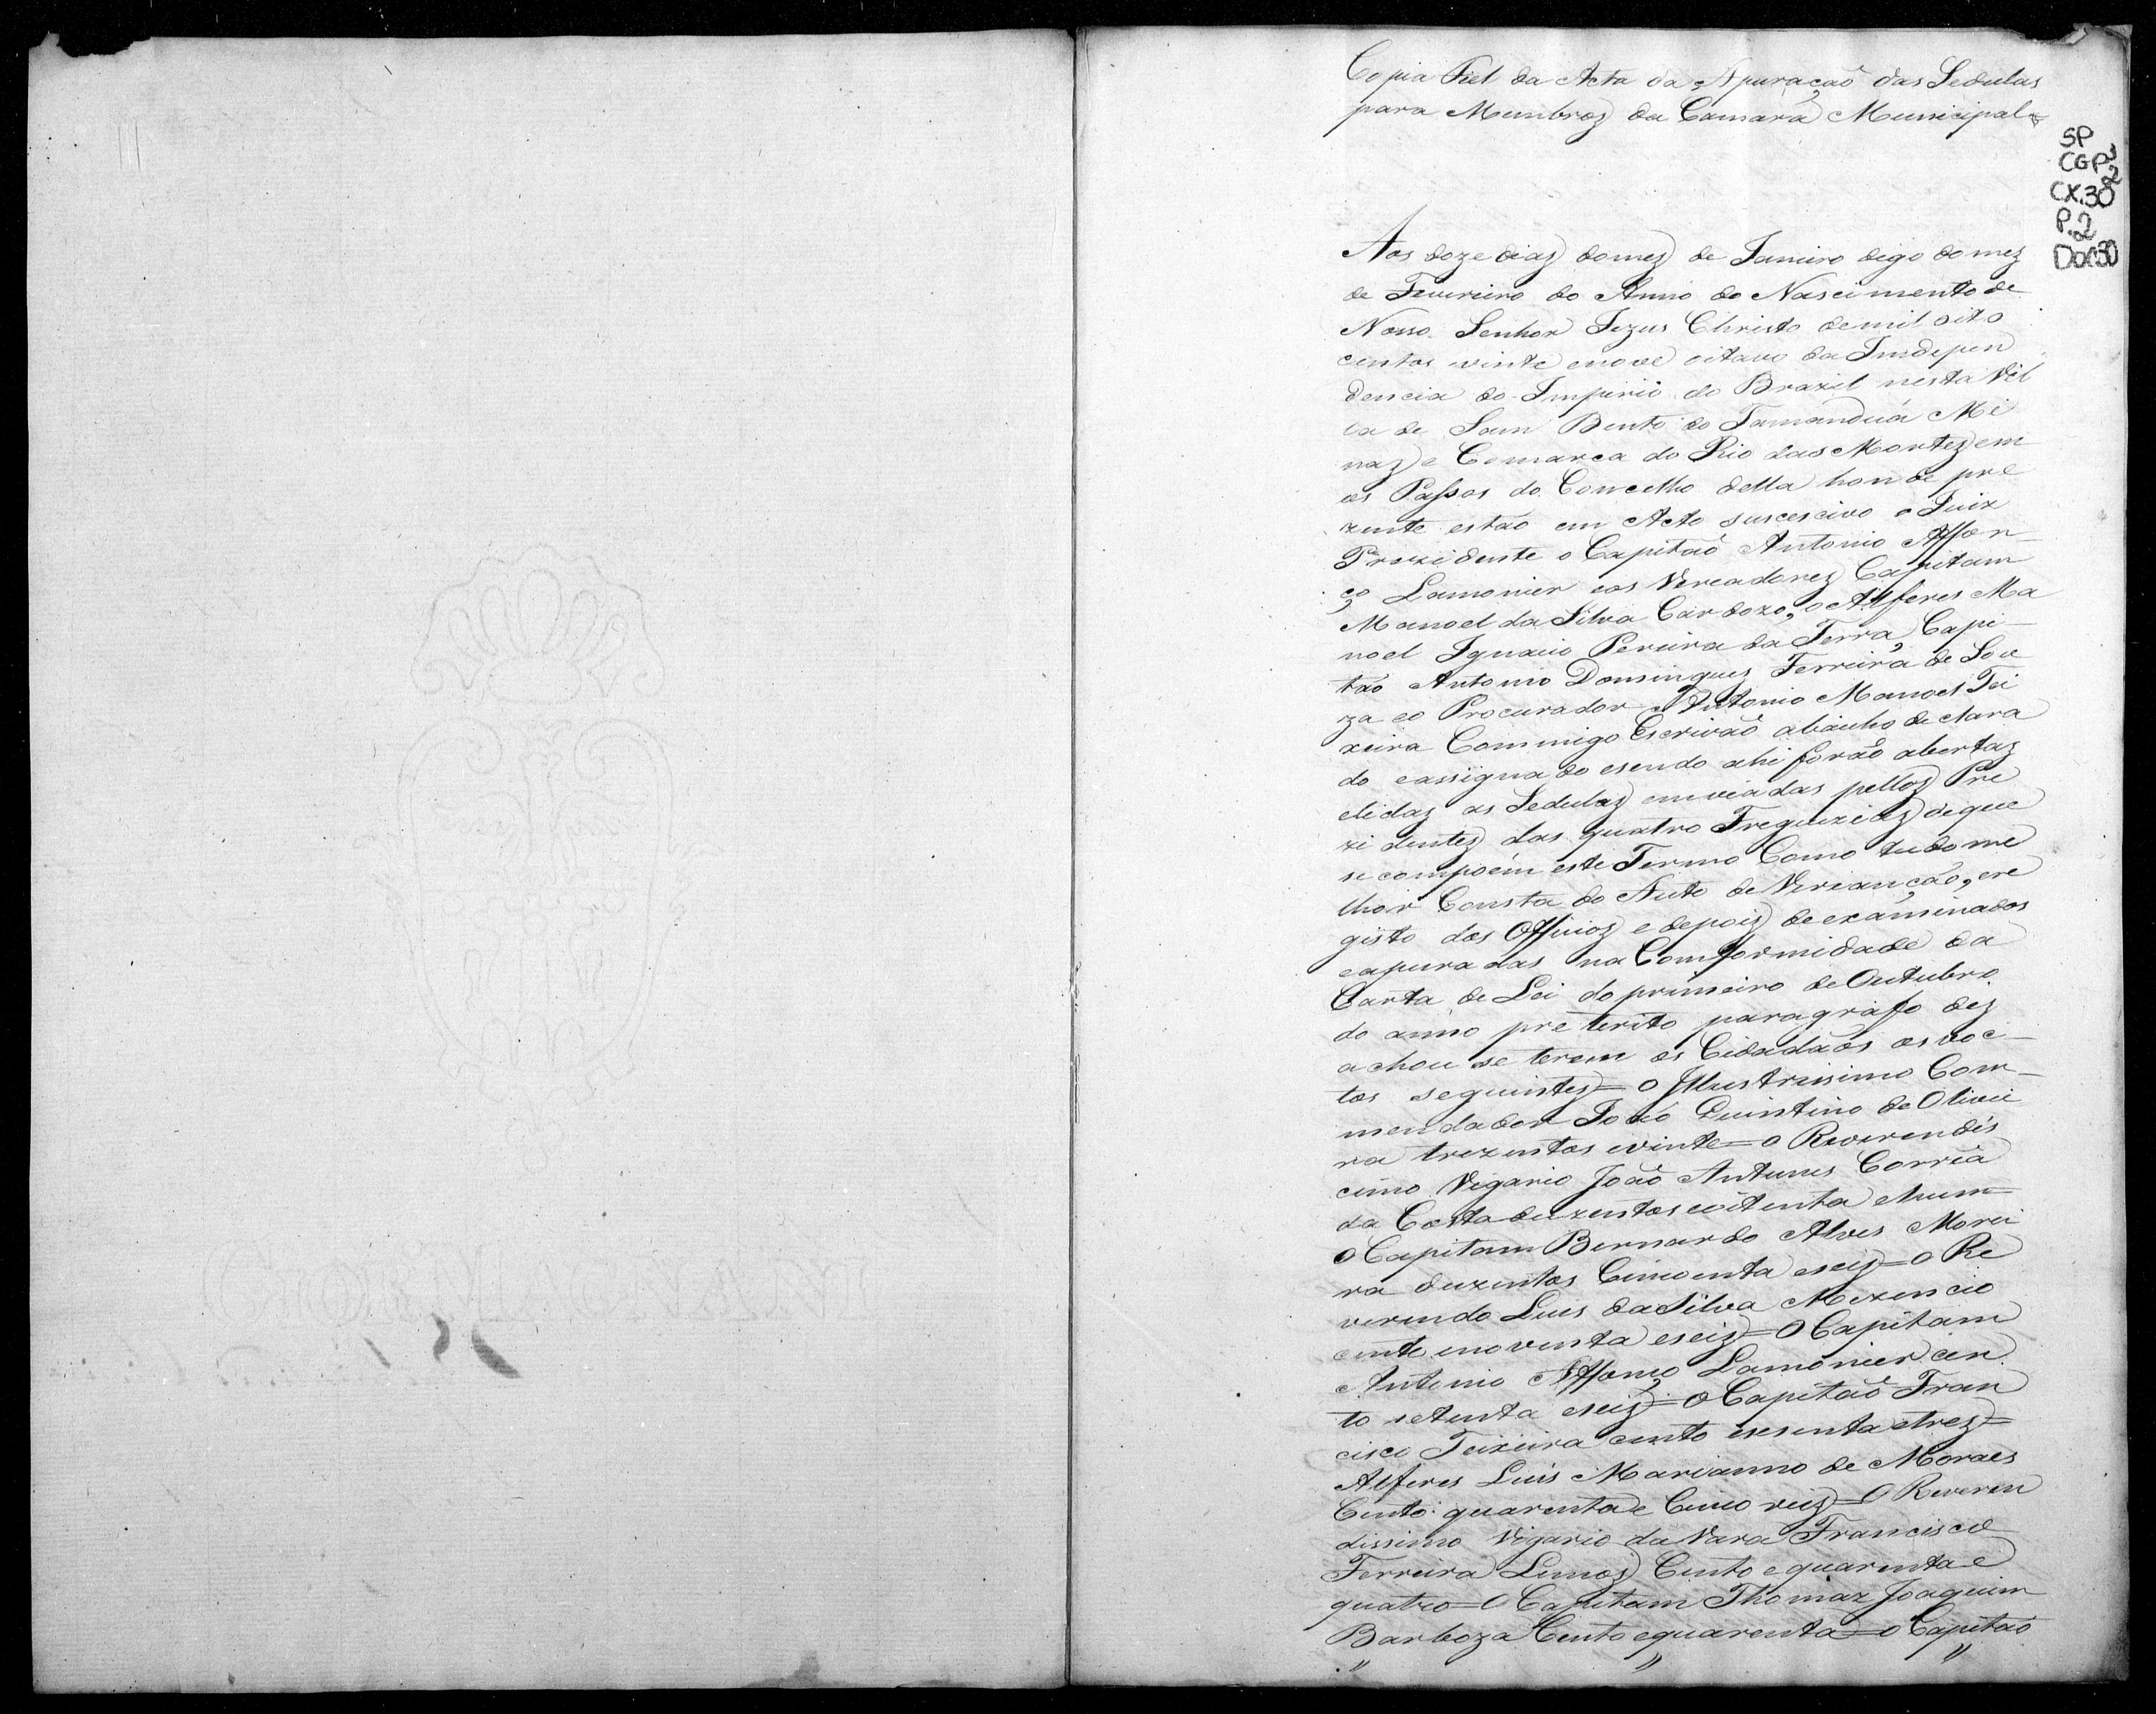 Copia Fiel da Acta da Apuração das Sedulas
para Membros da Camara Municipal
SP
CGP 3
2
CX.30
P.2
Doc30
Aos doze dias do mez de Janeiro digo do mez
de Fevereiro do Anno do Nascimento de
Nosso Senhor Jezus Christo de mil oito
centos vinte enove oitavo da Indepen
dencia do Imperio do Brazil nesta Vil
la de Sam Bento do Tamanduá Mi
nas e Comarca do Rio das Mortes em
os Passos do Concelho della honde pre
zente estão em Acto suscescivo o Juiz
Prezidente o Capitaõ Antonio Affon-
ço Lamonier eos Vereadores Capitam
Manoel da Silva Cardozo, o Alferes Ma
noel Ignacio Pereira da Terra, Capi-
tão Antonio Domingues Ferreira de Sou
za eo Procurador Antonio Manoel Tei
xeira Commigo Escrivaõ abaicho declara
do eassignado esendo ahi foraõ abertas
elidas as Sedulas enviadas pellos Pre
zidentes das quatro Freguezias deque
se compoem este Termo Como tudo me
lhor Consta do Auto de Vereança̧ão, ere
gisto dos Officios e depois de examinados
eapuradas na Comformidade da
Carta de Lei do primeiro de Outubro
do anno preterito paragrafo dez
achou se terem os Cidadãos os voc-
tos seguintes = O Illustrissimo Com-
mendador João Quintino de Olivei
ra trezentos evinte = o Reverendis
cimo Vigario Joaõ Antunes Corrêa
da Costa duzentos eoitenta ehum =
O Capitam Bernardo Alves Morei
ra duzentos Cincoenta eseis = o Re
verendo Luis da Silva Mezencio
cento enoventa eseis = O Capitam
Antonio Affonço Lamonier cen
to setenta eseis = O Capitaõ Fran
cisco Teixeira cento esesenta etres =
Alferes Luis Marianno de Moraes
Cento quarenta e Cinco = O Reveren
dissimo Vigario da Vara Francisco
Ferreira Lemos Cento e quarenta e
quatro = O Capitam Thomaz Joaquim
Barboza Cento equarenta = o Capitaõ
" " "